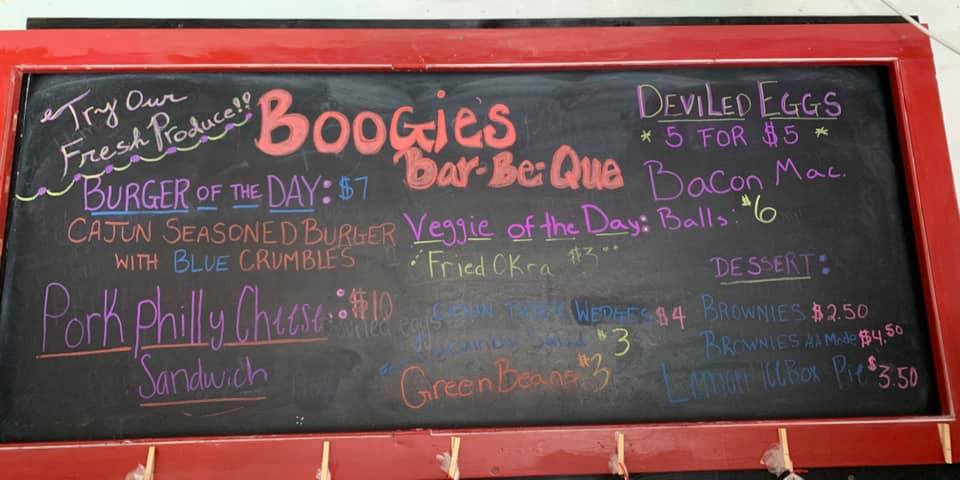 Try Our
Fresh Produce!!
BOOGiE's
Bar-Be-Que
BURGER OF THE DAY: $7
CAJUN SEASONED BURGER
WITH BLUE CRUMBLES
Pork Philly Cheese: $10
Sandwich
Veggie of the Day:
Fried OKra $3
CAJUN WEDGES $4
Salad $3
Green Beans $3
DEVILED EGGS
* 5 FOR $5 *
Bacon Mac.
Balls: $6
DESSERT:
BROWNIES $2.50
BROWNIES ALA Mode $4.50
LEMON ICEBOX PiE $3.50